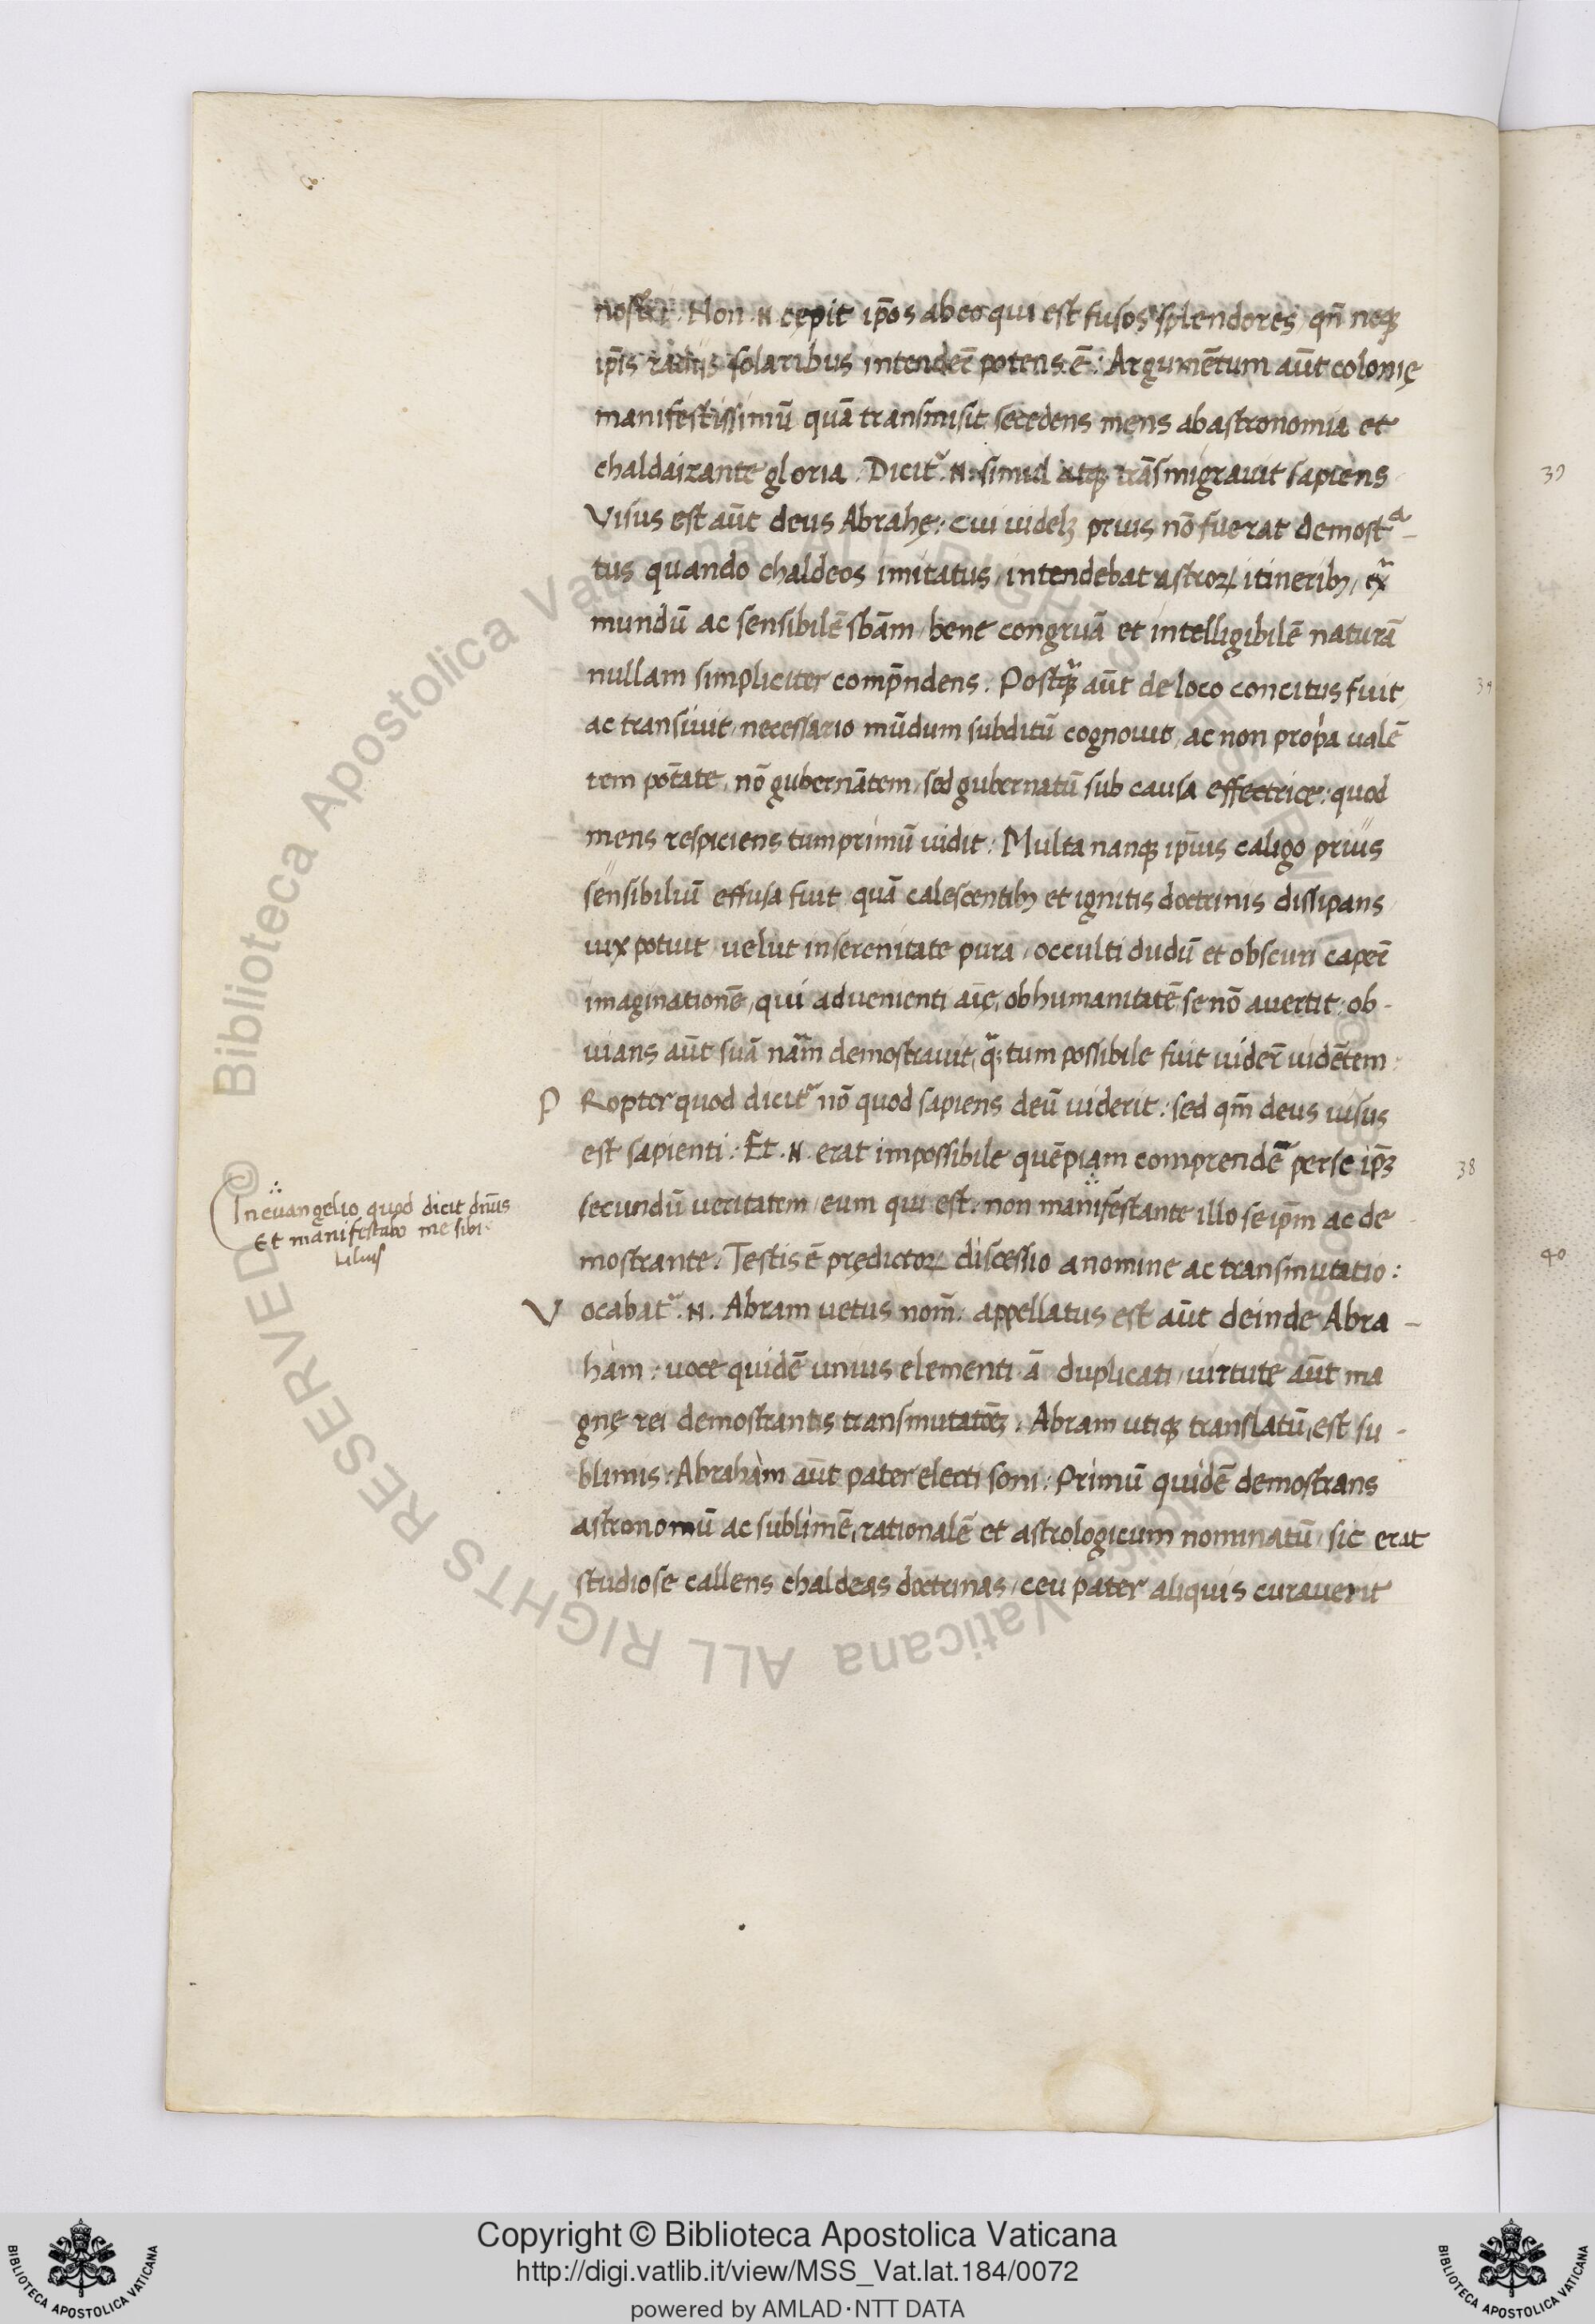 nostri. Non .N. cępit ip̄os ab eo qui est fusos splendores, qn̄ neq;
ip̄is radijs solaribus intender̄ potens .ē. Argumētum aūt colonię
manifestissimū quā transmisit secedens mens ab astronomia et
chaldaizante gloria. Dicit᷑ .N. simul atq; trāsmigrauit sapiens
Visus est aūt deus Abrahę: cui uidelꝫ prius nō fuerat demostᵃ-
tus quando chaldeos imitatus, intendebat astroꝝ itineribꝫ, ex̄
mundū ac sensibilē sb̄am, bene congruā et intelligibilē naturā
nullam simpliciter comp̄ndens. Postꝙ aūt de loco concitus fuit,
ac transiuit, necessario mūdum subditū cognouit, ac non prop̄a ualē
tem potāte, nō gubernātem, sed gubernatū sub causa effectrice: quod
mens respiciens tum primū uidit: Multa nanq; ip̄ius caligo prius
sensibiliū effusa fuit quā calescentibꝫ et ignitis doctrinis dissipans
uix potuit uelut in serenitate pura, occulti dudū et obscuri caper̄
imaginationē, qui aduenienti aīę, ob humanitatē se nō auertit: ob-
uians aūt suā nām demostrauit, qᵃꝫtum possibile fuit uider̄ uidētem:
P Ropter quod dicit᷑ nō quod sapiens deū uiderit: sed qm̄ deus uisus
est sapienti: Et .N. erat impossibile quēpiam comprendē per se ip̄ꝫ
secundū ueritatem, eum qui est. non manifestante illo se ip̄m ac de
mostrante. Testis ē prędictoꝝ discessio a nomine ac transmutatio:
V ocabat᷑ .N. Abram uetus nom̄: appellatus est aūt deinde Abra-
ham: uoce quidē unius elementi ā duplicati, uirtute aūt ma
gnę rei demostrantis transmutatōꝫ. Abram utiq; translatū, est su-
blimis: Abraham aūt pater electi soni: Primū quidē demostrans
astronomū ac sublimē, rationalē et astrologicum nominatū, sic erat
studiose callens chaldeas doctrinas, ceu pater aliquis curauerit
In euangelio quod dicit dn̄us
Et manifestabo me sibi
39
38
40
Copyright © Biblioteca Apostolica Vaticana
http://digi.vatlib.it/view/MSS_Vat.lat.184/0072
powered by AMLAD·NTT DATA
BIBLIOTECA APOSTOLICA VATICANA
BIBLIOTECA APOSTOLICA VATICANA
© Biblioteca Apostolica Vaticana ALL RIGHTS RESERVED